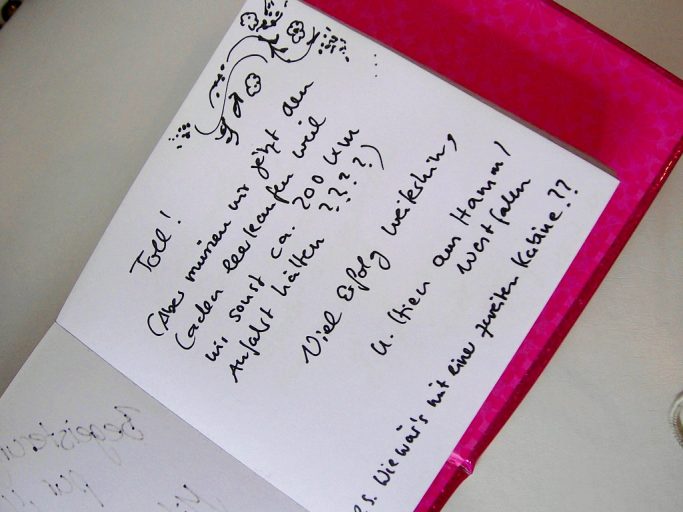 Toll!
(Aber müssen wir jetzt den
Laden leerkaufen weil
wir sonst ca. 200 km
Anfahrt hätten ????)
Viel Erfolg weiterhin,
aus Hamm/
Westfalen
P.S. Wie wär's mit einer zweiten Kabine??
Begeisterun
für